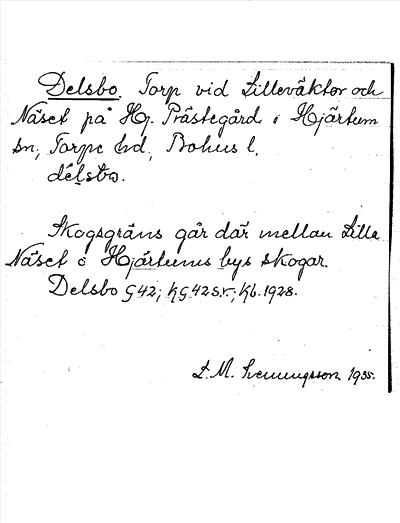 Delsbo. Torp vid Lilleväktor och
Näset på Hj. Prästegård i Hjärtum
sn., Torpe hd, Bohus l.
délsbo.
Skogsgräns går där mellan Lilla
Näset o Hjärtums bys skogar.
Delsbo G 42; KG 42 s.v.; Kb. 1928.
L. M. Svenungsson 1935.